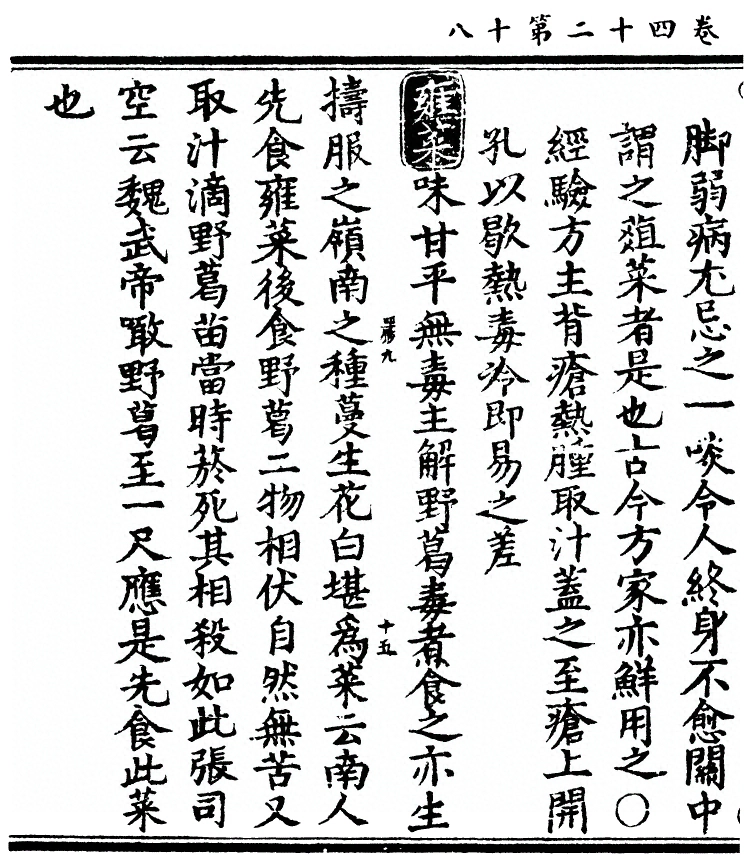 卷四十二第十八
脚弱病尤忌之一啖令人終身不愈關中
謂之蕺菜者是也古今方家亦鮮用之○
經驗方主背瘡熱腫取汁蓋之至瘡上開
孔以歇熱毒冷即易之差
蕹菜味甘平無毒主解野葛毒煮食之亦生
擣服之嶺南之種蔓生花白堪爲菜云南人
先食雍菜後食野葛二物相伏自然無苦又
取汁滴野葛苗當時菸死其相殺如此張司
空云魏武帝噉野葛至一尺應是先食此菜
也
十五